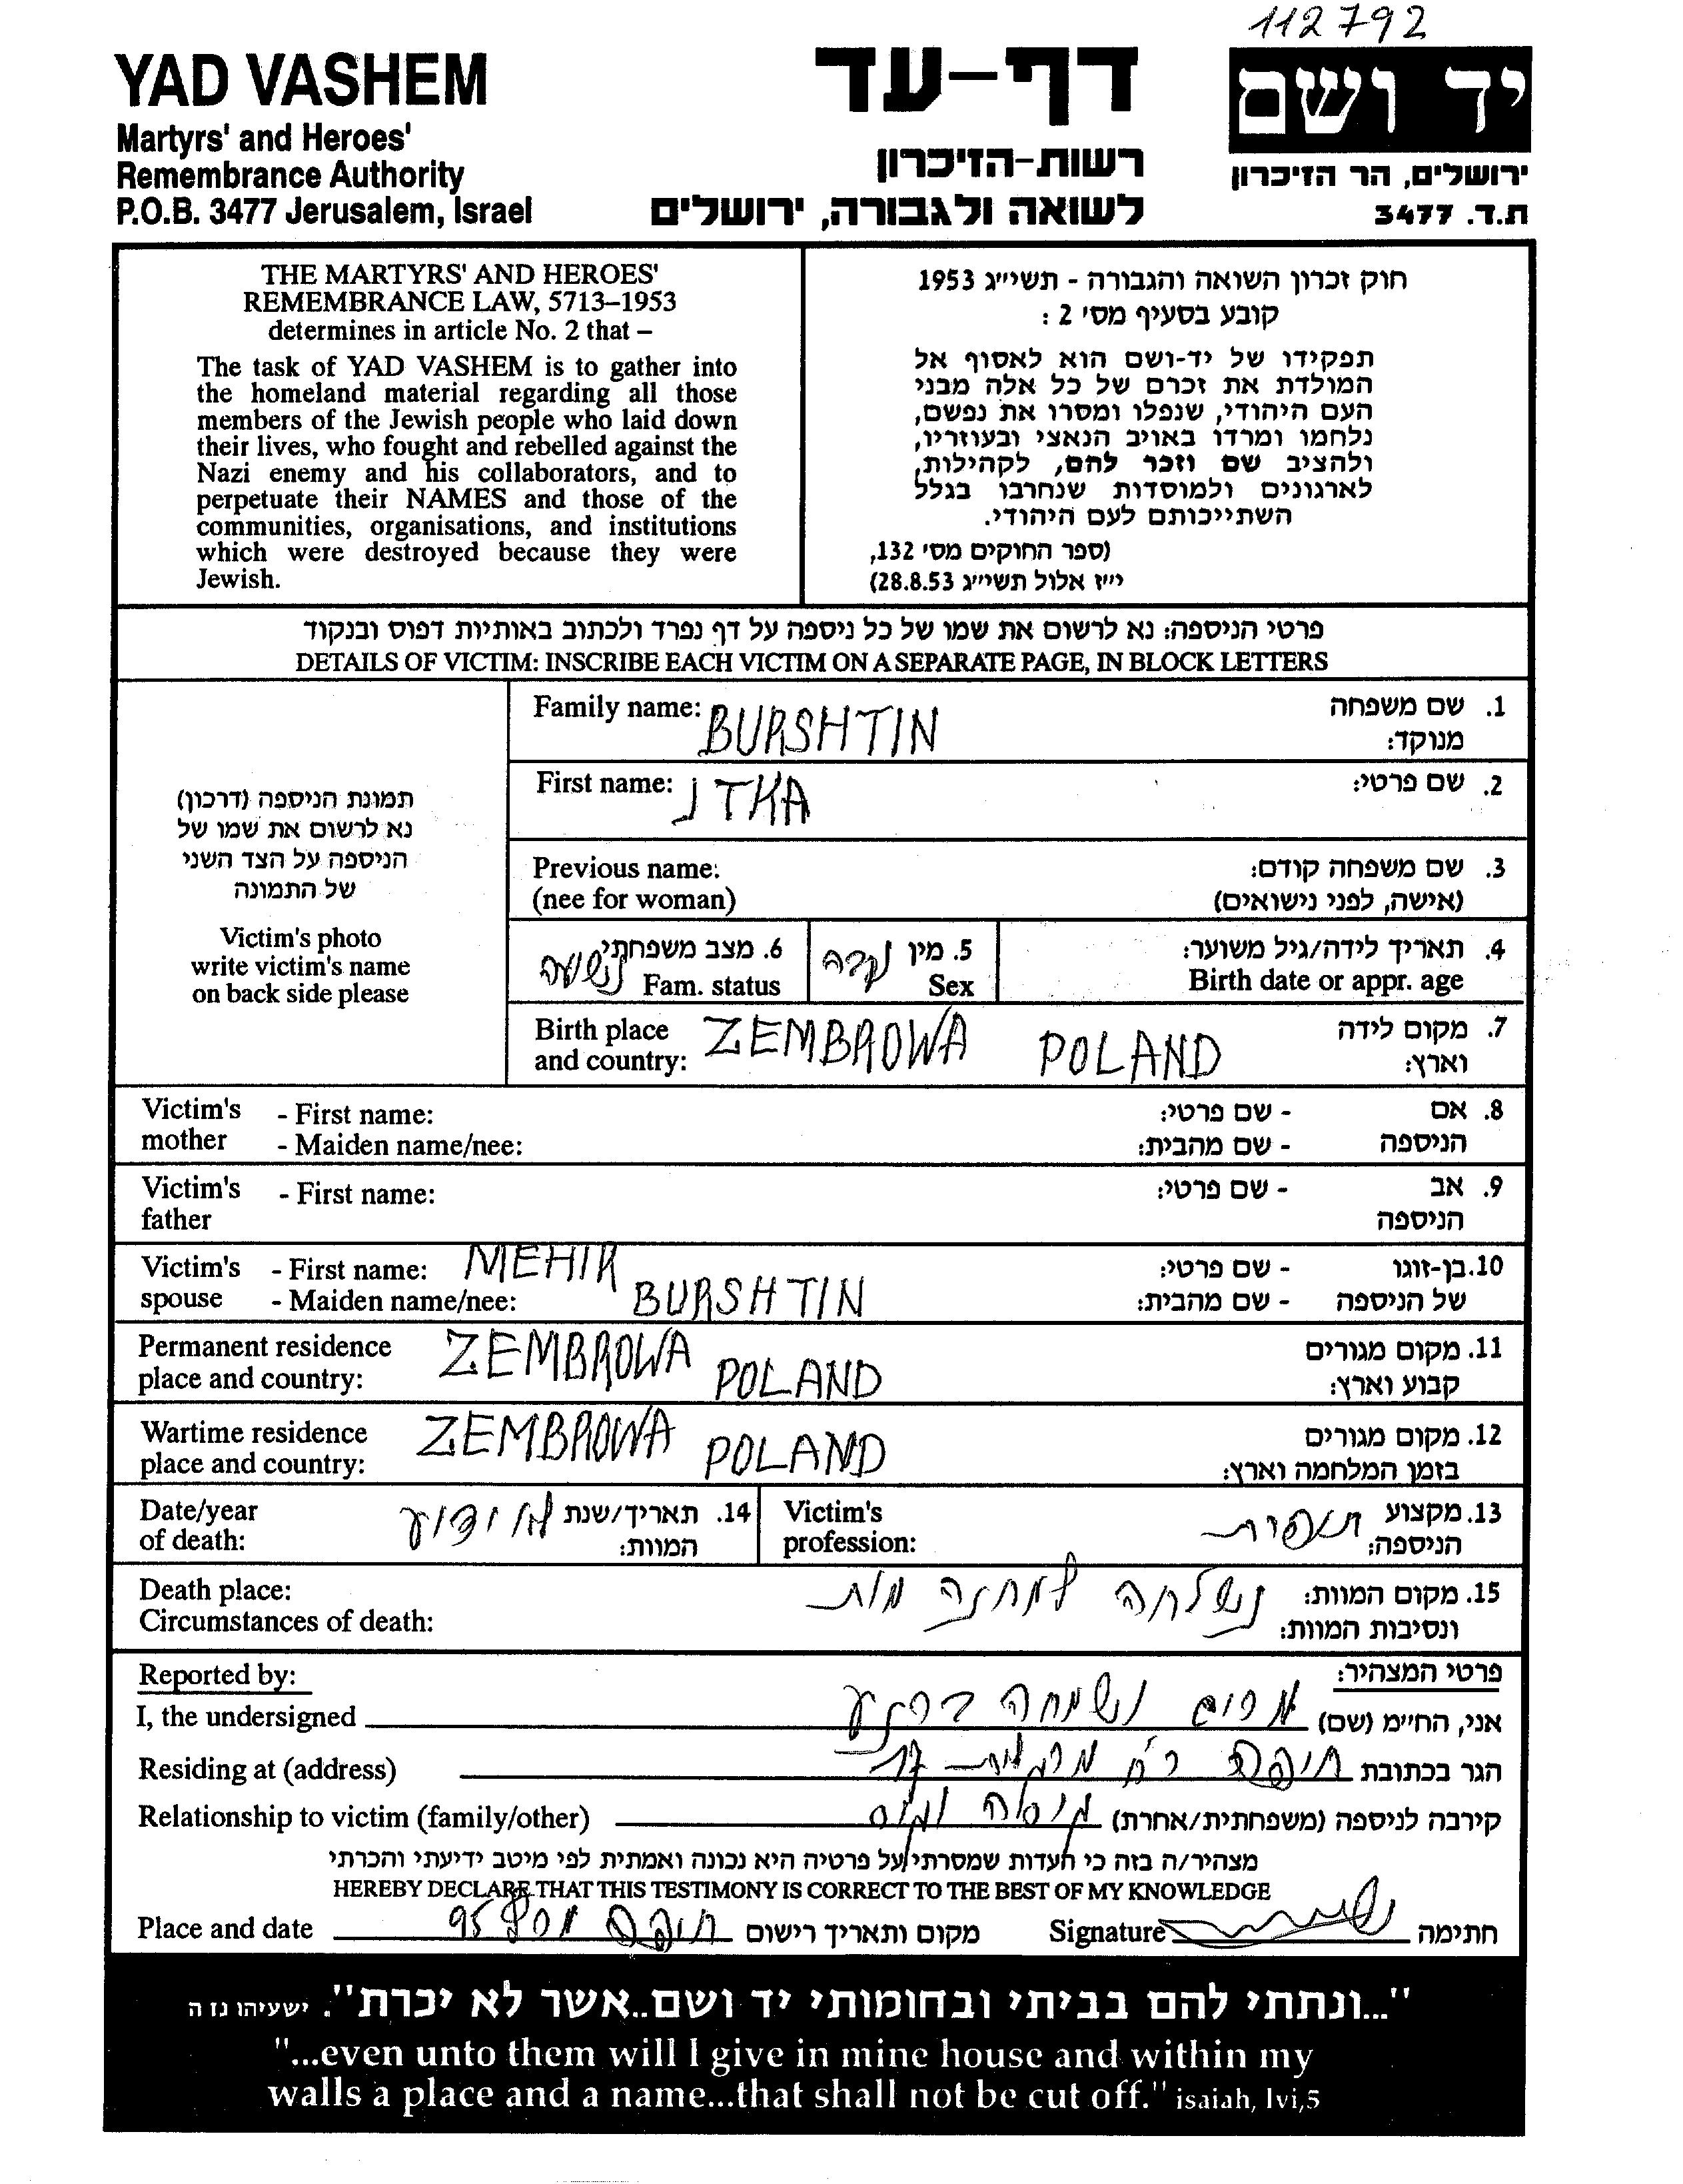 112792
YAD VASHEM
Martyrs' and Heroes'
Remembrance Authority
P.O.B. 3477 Jerusalem, Israel
דף-עד
רשות-הזיכרון
לשואה ולגבורה, ירושלים
יד ושם
ירושלים, הר הזיכרון
ת.ד. 3477
THE MARTYRS' AND HEROES'
REMEMBRANCE LAW, 5713–1953
determines in article No. 2 that –
The task of YAD VASHEM is to gather into
the homeland material regarding all those
members of the Jewish people who laid down
their lives, who fought and rebelled against the
Nazi enemy and his collaborators, and to
perpetuate their NAMES and those of the
communities, organisations, and institutions
which were destroyed because they were
Jewish.
חוק זכרון השואה והגבורה - תשי"ג 1953
קובע בסעיף מס' 2 :
תפקידו של יד-ושם הוא לאסוף אל
המולדת את זכרם של כל אלה מבני
העם היהודי, שנפלו ומסרו את נפשם,
נלחמו ומרדו באויב הנאצי ובעוזריו,
ולהציב שם וזכר להם, לקהילות,
לארגונים ולמוסדות שנחרבו בגלל
השתייכותם לעם היהודי.
(ספר החוקים מס' 132,
י"ז אלול תשי"ג 28.8.53)
פרטי הניספה: נא לרשום את שמו של כל ניספה על דף נפרד ולכתוב באותיות דפוס ובנקוד
DETAILS OF VICTIM: INSCRIBE EACH VICTIM ON A SEPARATE PAGE, IN BLOCK LETTERS
תמונת הניספה (דרכון)
נא לרשום את שמו של
הניספה על הצד השני
של התמונה
Victim's photo
write victim's name
on back side please
Family name: BURSHTIN 1. שם משפחה
מנוקד:
First name: JTKA 2. שם פרטי:
Previous name: 3. שם משפחה קודם:
(nee for woman) (אישה, לפני נישואים)
6. מצב משפחתי נשואה 5. מין נקבה 4. תאריך לידה/גיל משוער:
Fam. status Sex Birth date or appr. age
Birth place ZEMBROWA POLAND 7. מקום לידה
and country: וארץ:
Victim's - First name: - שם פרטי: 8. אם
mother - Maiden name/nee: - שם מהבית: הניספה
Victim's - First name: - שם פרטי: 9. אב
father הניספה
Victim's - First name: MEHIR - שם פרטי: 10. בן-זוגו
spouse - Maiden name/nee: BURSHTIN - שם מהבית: של הניספה
Permanent residence ZEMBROWA POLAND 11. מקום מגורים
place and country: קבוע וארץ:
Wartime residence ZEMBROWA POLAND 12. מקום מגורים
place and country: בזמן המלחמה וארץ:
Date/year 14. תאריך/שנת לא ידוע Victim's 13. מקצוע
of death: המוות: profession: הניספה:
Death place: 15. מקום המוות: נשלחה למחנה מות
Circumstances of death: ונסיבות המוות:
Reported by: פרטי המצהיר:
I, the undersigned אני, החיי"מ (שם)
Residing at (address) הגר בכתובת חיפה
Relationship to victim (family/other) קירבה לניספה (משפחתית/אחרת)
מצהיר/ה בזה כי העדות שמסרתי על פרטיה היא נכונה ואמתית לפי מיטב ידיעתי והכרתי
HEREBY DECLARE THAT THIS TESTIMONY IS CORRECT TO THE BEST OF MY KNOWLEDGE
Place and date מקום ותאריך רישום חיפה 95 Signature חתימה
"...ונתתי להם בביתי ובחומותי יד ושם..אשר לא יכרת". ישעיהו נו ה
"...even unto them will I give in mine house and within my
walls a place and a name...that shall not be cut off." isaiah, lvi,5